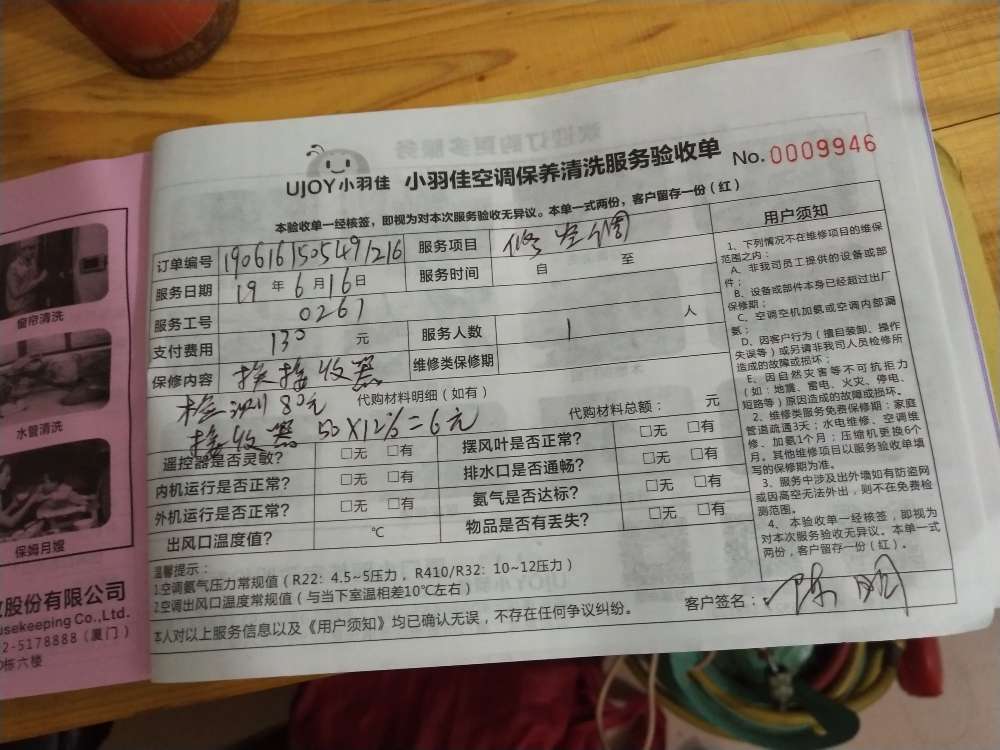 窗帘清洗
水管清洗
保姆月嫂
股份有限公司
usekeeping Co.,Ltd.
2-5178888（厦门）
栋六楼
UJOY小羽佳 小羽佳空调保养清洗服务验收单 No.0009946
本验收单一经核签，即视为对本次服务验收无异议。本单一式两份，客户留存一份（红）
订单编号 1906161505491216 服务项目 修空调
服务日期 19 年 6 月 16 日 服务时间 自 至
服务工号 0267
支付费用 130 元 服务人数 1 人
保修内容 换接收器 维修类保修期
检测80元 代购材料明细（如有） 代购材料总额： 元
接收器 50×12%=6元
遥控器是否灵敏？ □无 □有 摆风叶是否正常？ □无 □有
内机运行是否正常？ □无 □有 排水口是否通畅？ □无 □有
外机运行是否正常？ □无 □有 氨气是否达标？ □无 □有
出风口温度值？ ℃ 物品是否有丢失？ □无 □有
用户须知
1、下列情况不在维修项目的维保
范围之内：
A、非我司员工提供的设备或部
件；
B、设备或部件本身已经超过出厂
保修期；
C、空调空机加氨或空调内部漏
氨；
D、因客户行为（擅自装卸、操作
失误等）或另请非我司人员检修所
造成的故障或损坏；
E、因自然灾害等不可抗拒力
（如：地震、雷电、火灾、停电、
短路等）原因造成的故障或损坏。
2、维修类服务免费保修期：家庭
管道疏通3天；水电维修、空调维
修、加氨1个月；压缩机更换6个
月。其他维修项目以服务验收单填
写的保修期为准。
3、服务中涉及出外墙如有防盗网
或因高空无法外出，则不在免费检
测范围。
4、本验收单一经核签，即视为
对本次服务验收无异议。本单一式
两份，客户留存一份（红）。
温馨提示：
1.空调氨气压力常规值（R22: 4.5~5压力， R410/R32: 10~12压力）
2.空调出风口温度常规值（与当下室温相差10℃左右）
本人对以上服务信息以及《用户须知》均已确认无误，不存在任何争议纠纷。 客户签名：陈